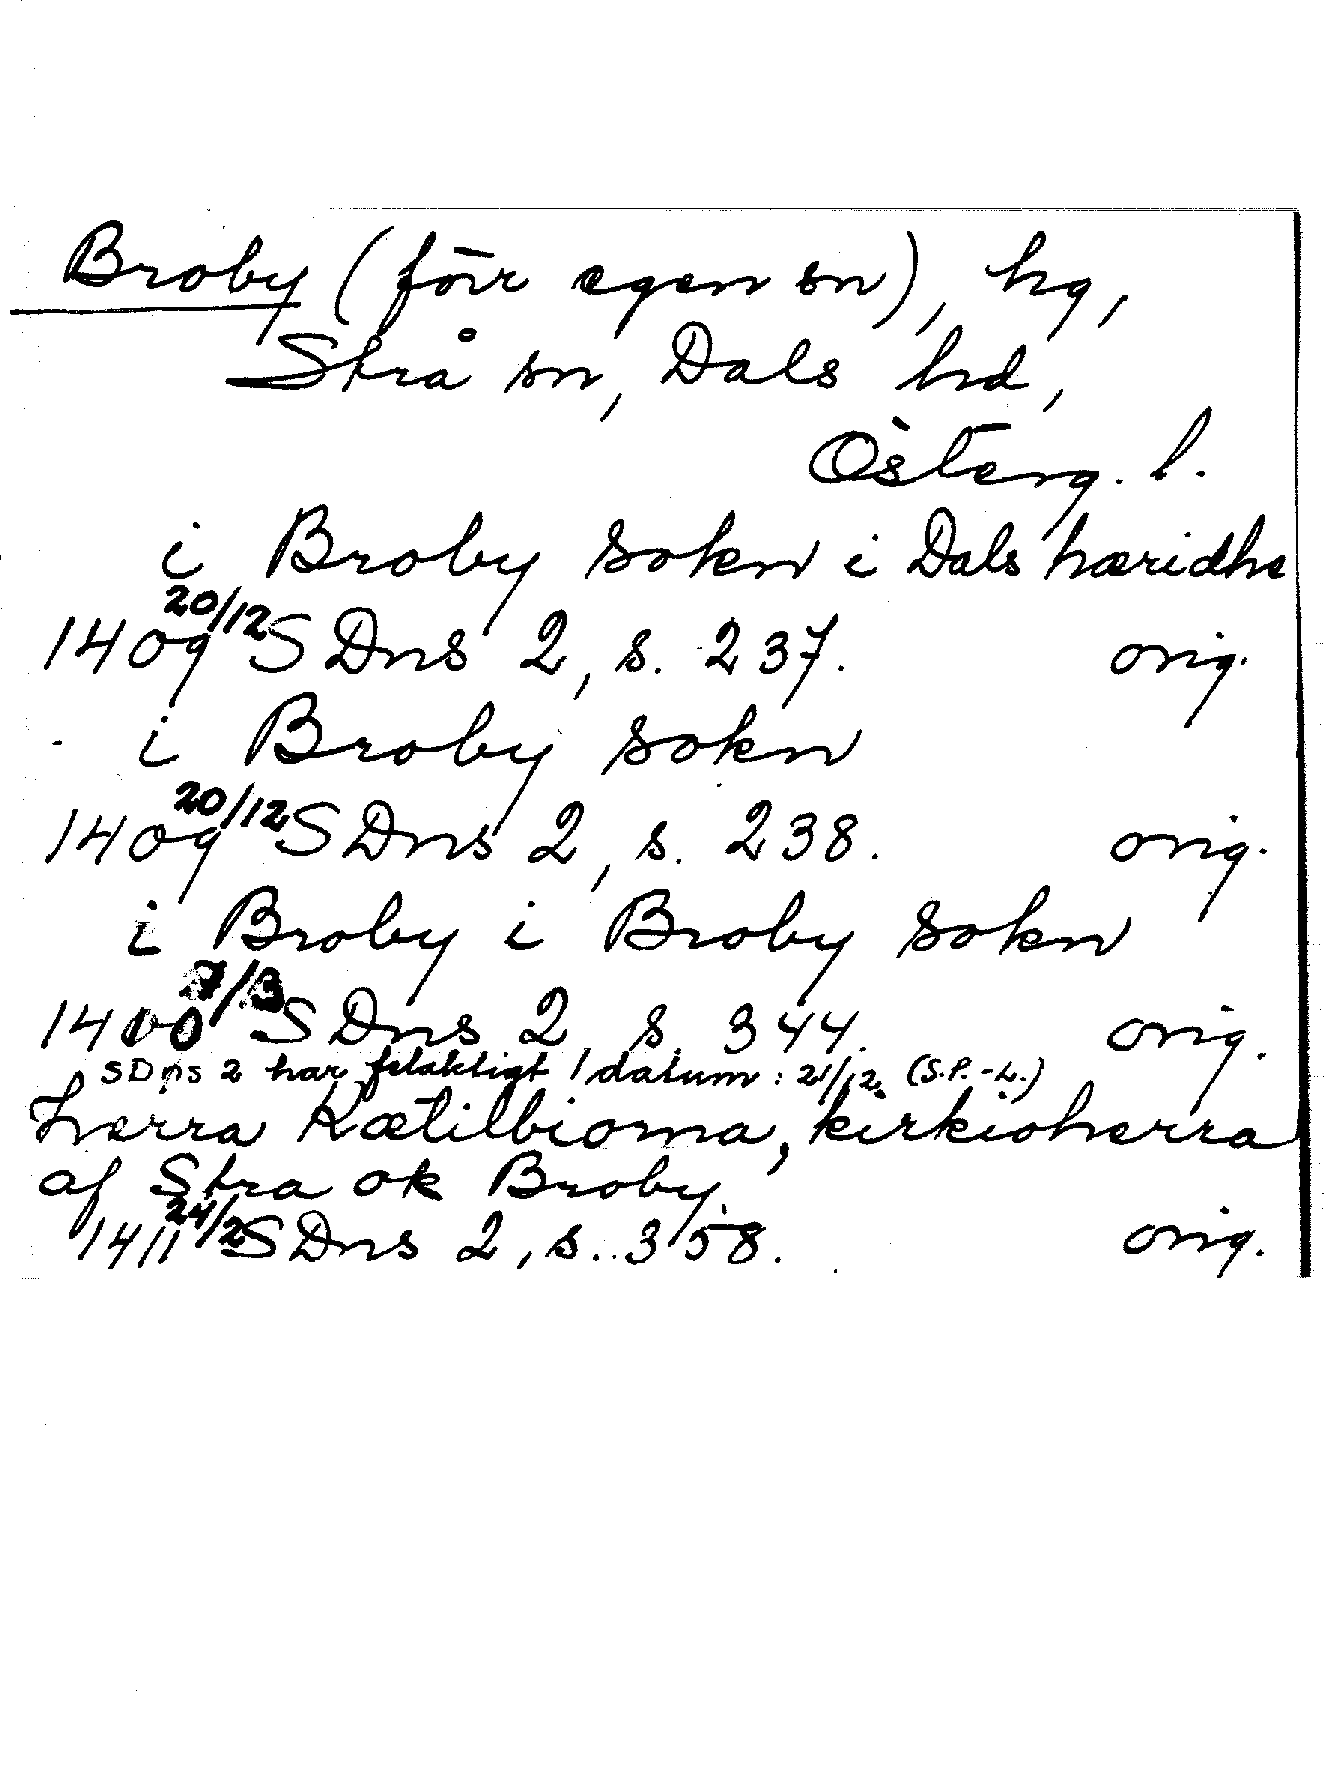 Broby (förr egen sn), hg,
Strå sn, Dals hd,
Österg. l.
i Broby sokn i Dals hæridhe
1409 20/12 SDns 2, s. 237. orig.
i Broby sokn
1409 20/12 SDns 2, s. 238. orig.
i Broby i Broby sokn
1400 7/3 SDns 2, s. 344. orig.
SDns 2 har felaktigt datum: 21/12. (S.P.-L.)
hærra Kætilbiorna, kirkioherra
af Stra ok Broby
1411 24/2 SDns 2, s. 358. orig.